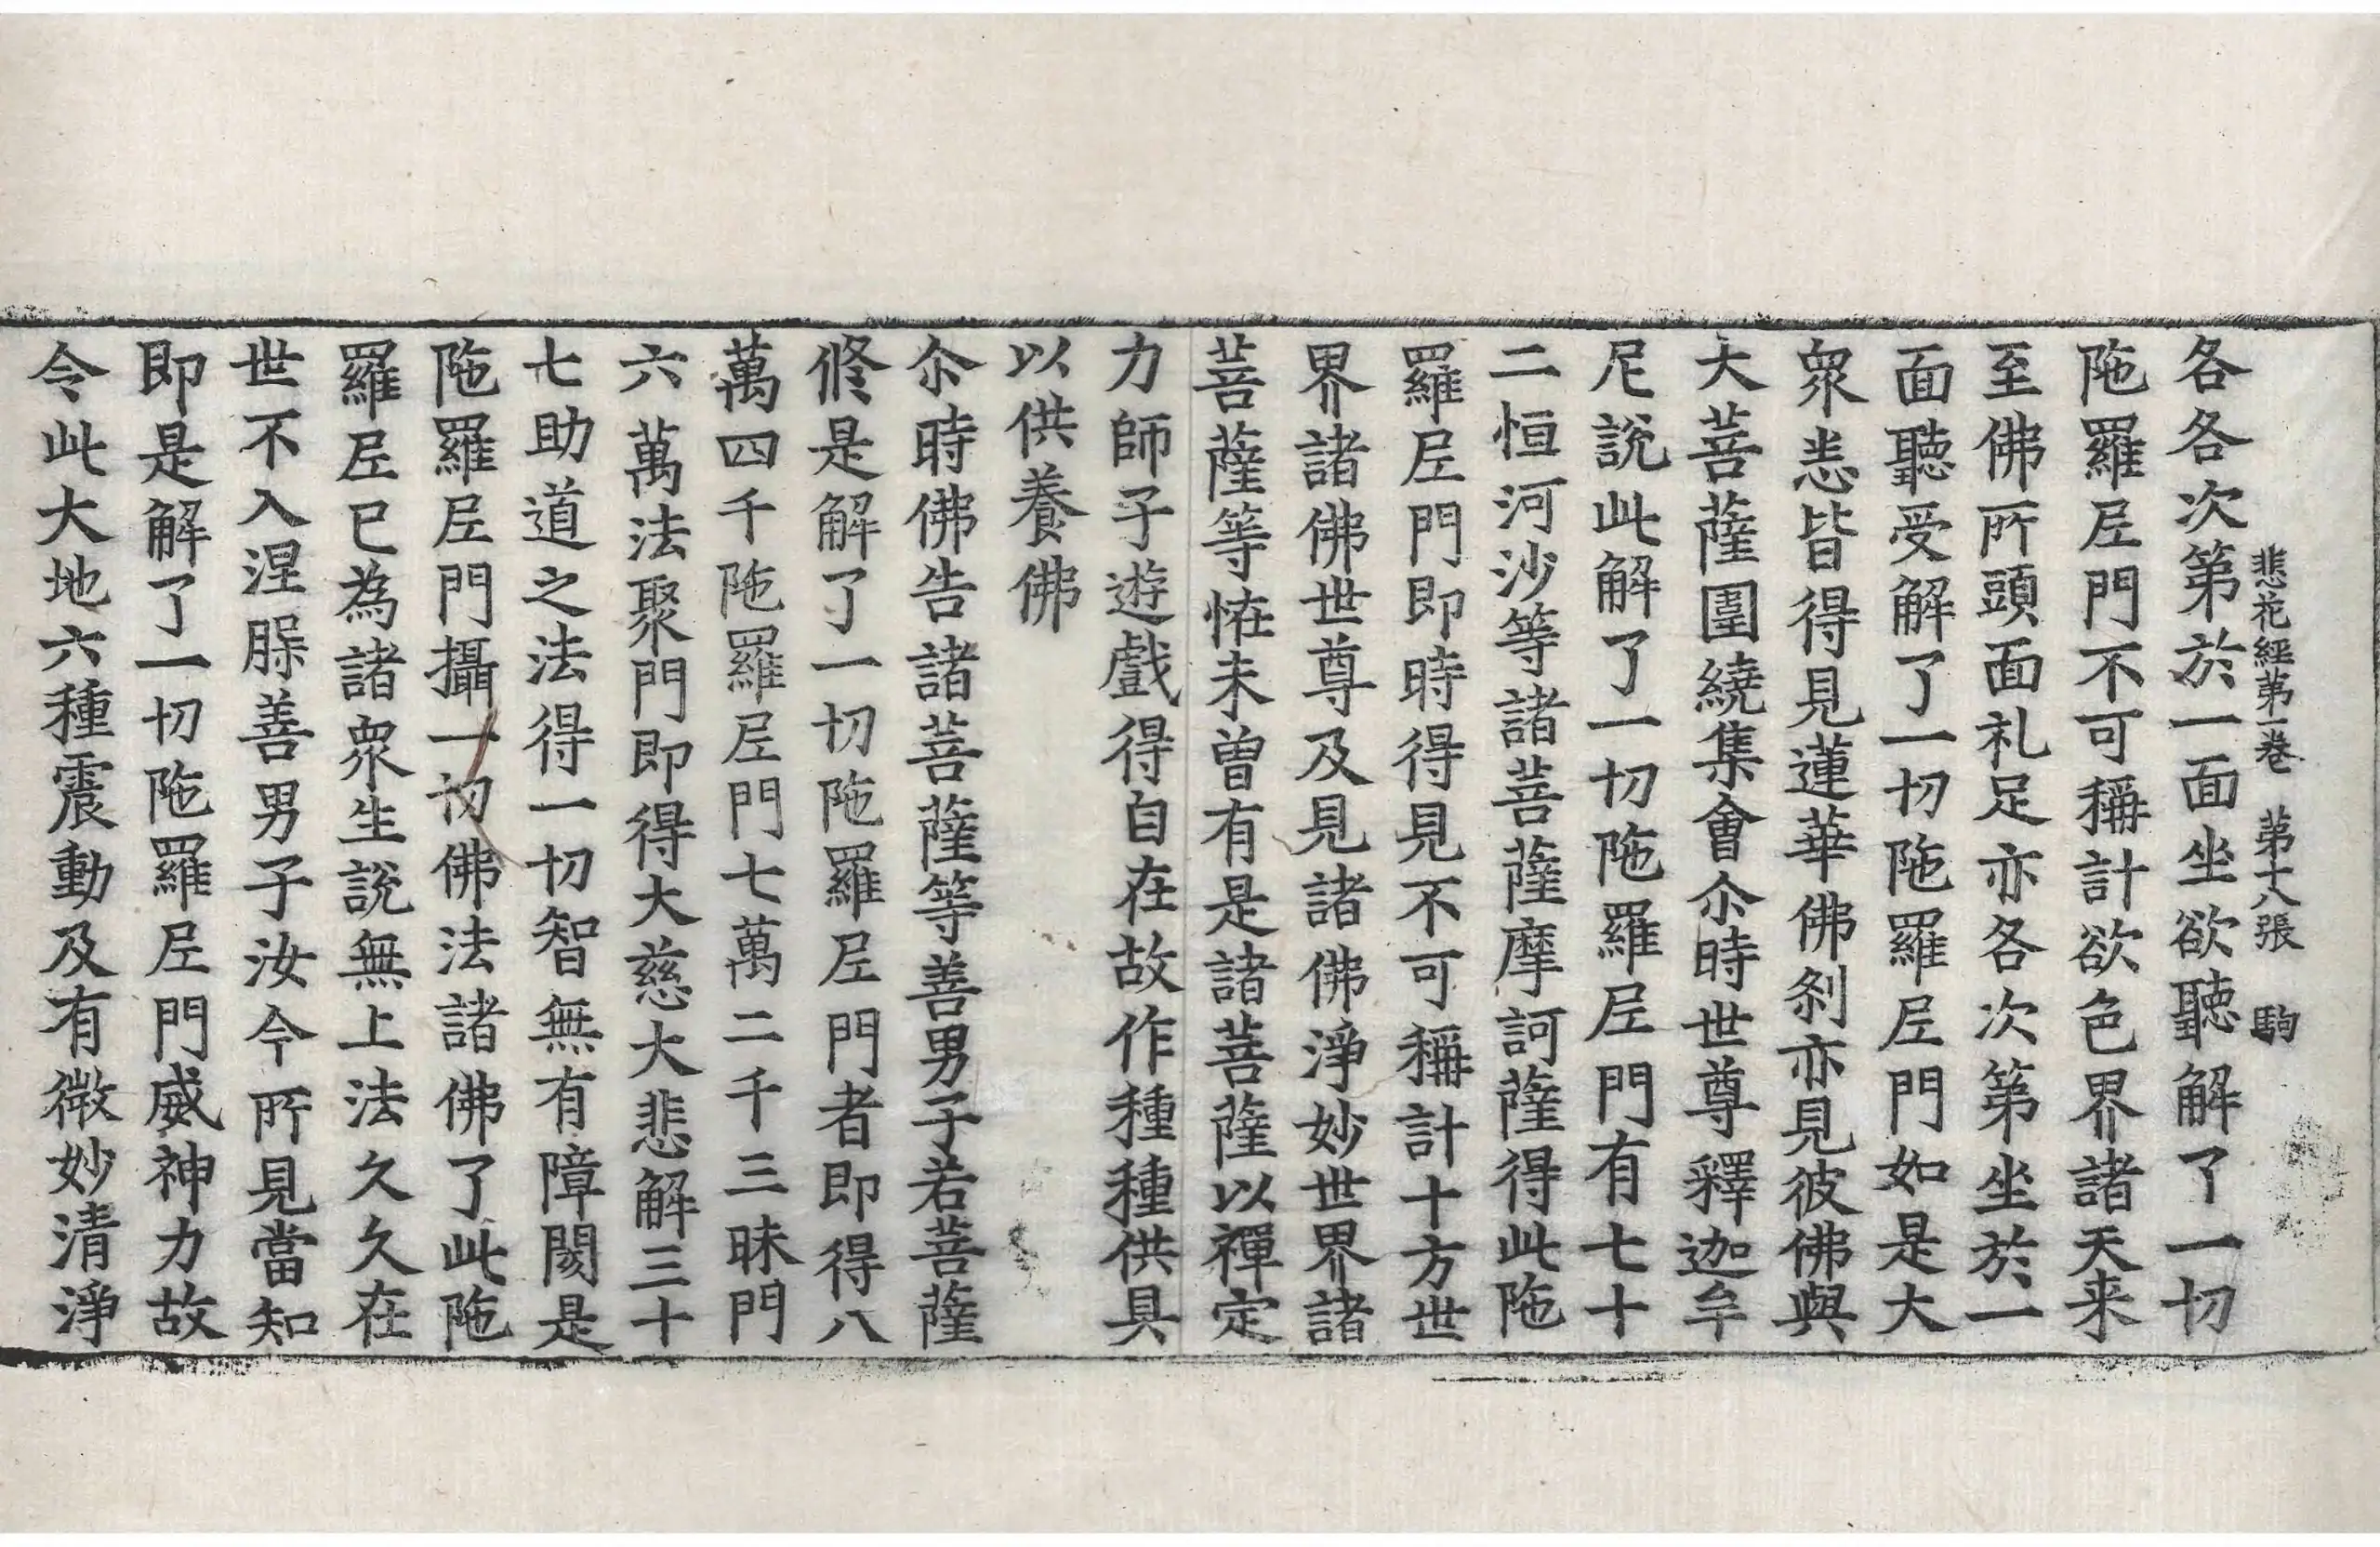 悲花經第一卷　第十八張　駒
各各次第於一面坐欲聽解了一切
陁羅𡰱門不可稱計欲色界諸天来
至佛所頭面礼足亦各次第坐於一
面聽受解了一切陁羅𡰱門如是大
衆恚皆得見蓮華佛剎亦見彼佛與
大菩薩圍繞集會尒時世尊釋迦牟
尼說此解了一切陁羅𡰱門有七十
二恒河沙等諸菩薩摩訶薩得此陁
羅𡰱門即時得見不可稱計十方世
界諸佛世尊及見諸佛淨妙世界諸
菩薩等恠未曾有是諸菩薩以禪定
力師子遊戲得自在故作種種供具
以供養佛
尒時佛告諸菩薩等善男子若菩薩
修是解了一切陁羅𡰱門者即得八
萬四千陁羅𡰱門七萬二千三昧門
六萬法聚門即得大慈大悲解三十
七助道之法得一切智無有障閡是
陁羅𡰱門攝一切佛法諸佛了此陁
羅𡰱已為諸衆生說無上法久久在
世不入涅槃善男子汝今所見當知
即是解了一切陁羅𡰱門威神力故
令此大地六種震動及有微妙清淨